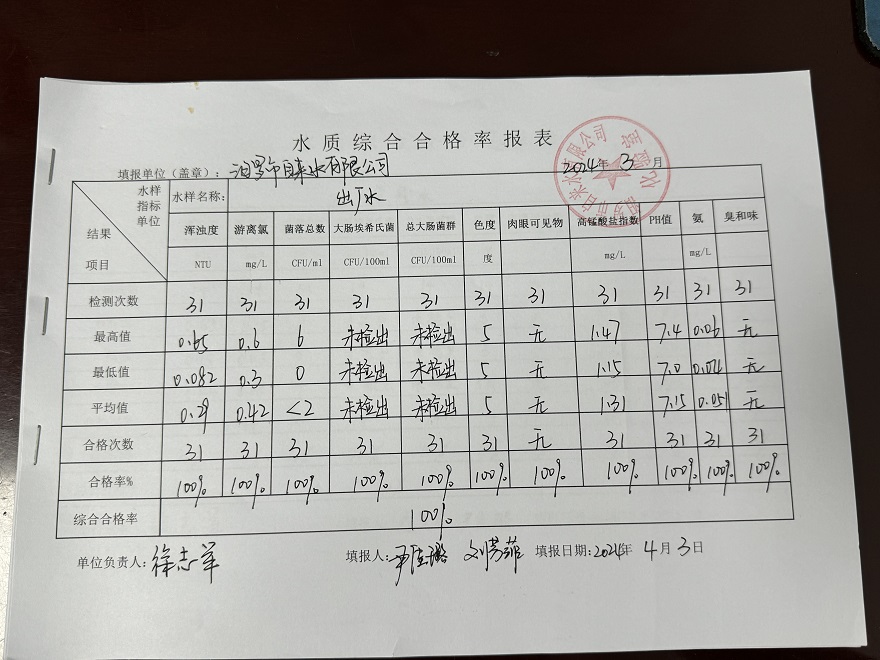 水质综合合格率报表
填报单位（盖章）：汨罗市自来水有限公司 2024年 3 月
水样 指标 单位 结果 项目 水样名称: 出厂水
浑浊度 游离氯 菌落总数 大肠埃希氏菌 总大肠菌群 色度 肉眼可见物 高锰酸盐指数 PH值 氨 臭和味
NTU mg/L CFU/ml CFU/100ml CFU/100ml 度 mg/L mg/L
检测次数 31 31 31 31 31 31 31 31 31 31 31
最高值 0.65 0.6 6 未检出 未检出 5 无 1.47 7.4 0.06 无
最低值 0.082 0.3 0 未检出 未检出 5 无 1.15 7.0 0.024 无
平均值 0.29 0.42 <2 未检出 未检出 5 无 1.31 7.15 0.051 无
合格次数 31 31 31 31 31 31 无 31 31 31 31
合格率% 100% 100% 100% 100% 100% 100% 100% 100% 100% 100% 100%
综合合格率 100%
单位负责人: 徐志军 填报人: 刘芳菲 填报日期: 2024年 4月 3日